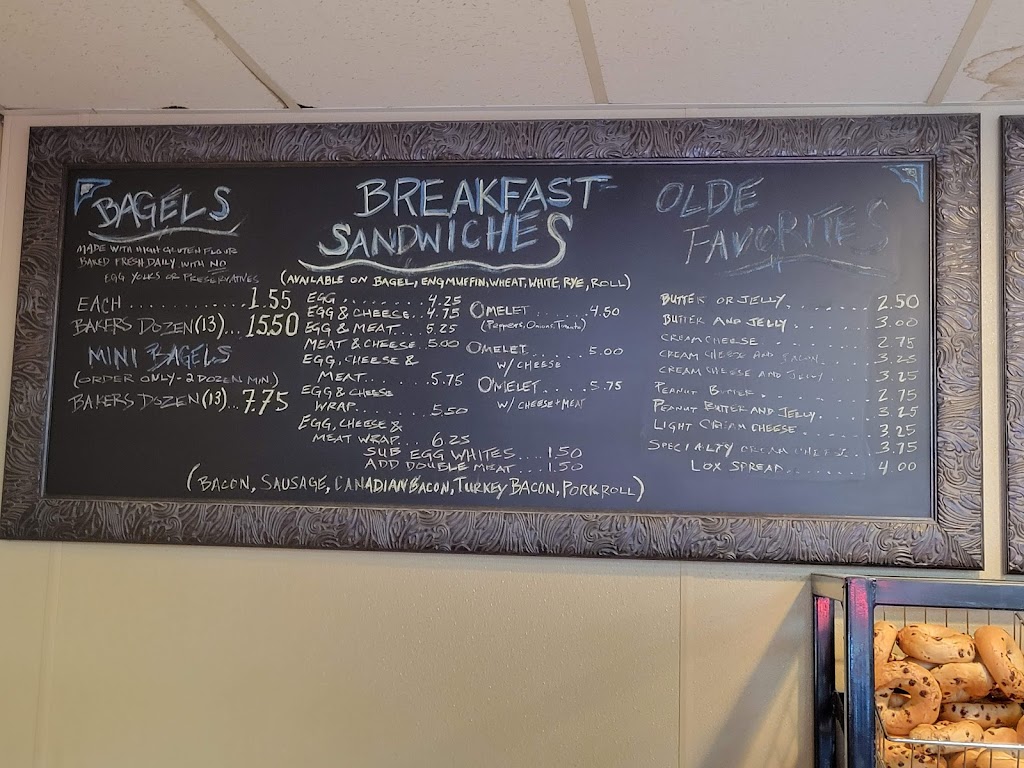 BAGELS
MADE WITH HIGH GLUTEN FLOUR
BAKED FRESH DAILY WITH NO
EGG YOLKS OR PRESERVATIVES
EACH ............ 1.55
BAKERS DOZEN (13)... 15.50
MINI BAGELS
(ORDER ONLY - 2 DOZEN MIN)
BAKERS DOZEN (13)... 7.75
BREAKFAST
SANDWICHES
(AVAILABLE ON BAGEL, ENG MUFFIN, WHEAT, WHITE, RYE, ROLL)
EGG ......... 4.25
EGG & CHEESE .... 4.75
EGG & MEAT ... 5.25
MEAT & CHEESE . 5.00
EGG, CHEESE &
MEAT ....... 5.75
EGG & CHEESE
WRAP ........ 5.50
EGG, CHEESE &
MEAT WRAP ... 6.25
OMELET ...... 4.50
(PEPPERS, ONIONS, TOMATO)
OMELET ....... 5.00
W/ CHEESE
OMELET ...... 5.75
W/ CHEESE + MEAT
SUB EGG WHITES .... 1.50
ADD DOUBLE MEAT .... 1.50
(BACON, SAUSAGE, CANADIAN BACON, TURKEY BACON, PORK ROLL)
OLDE
FAVORITES
BUTTER OR JELLY, ........ 2.50
BUTTER AND JELLY ........ 3.00
CREAM CHEESE ........ 2.75
CREAM CHEESE AND BACON ..... 3.25
CREAM CHEESE AND JELLY ..... 3.25
PEANUT BUTTER .......... 2.75
PEANUT BUTTER AND JELLY ..... 3.25
LIGHT CREAM CHEESE ........ 3.25
SPECIALTY CREAM CHEESE ... 3.75
LOX SPREAD ......... 4.00